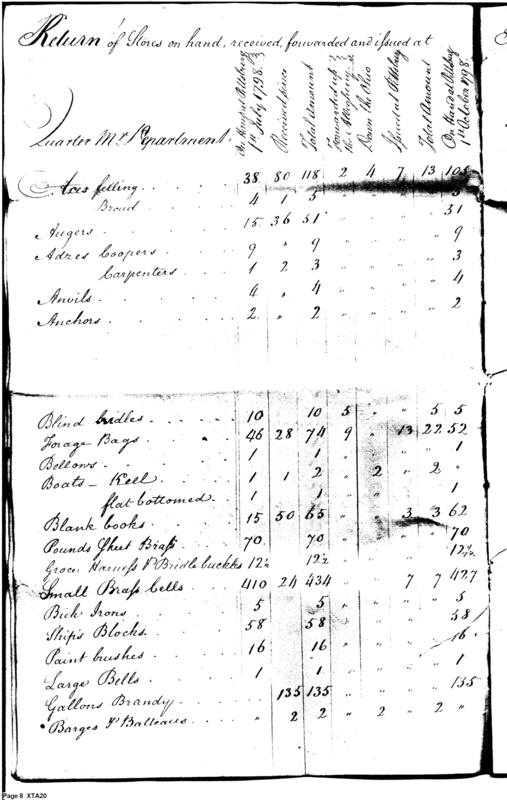 Return of Stores on hand, received, forwarded and issued at
Quarter Mr Department. On Hand at Pittsburg 1st July 1798. Received since Total Amount Forwarded up the Allegheny Down the Ohio Issued at Pittsburg Total Amount On Hand at Pittsburg 1st October 1798.
Axes felling . . . 38 80 118 2 4 7 13 105
Broad . . . 4 1 5 " " " " 5
Augers . . . 15 36 51 " " " " 51
Adzes Coopers . . . 9 " 9 " " " " 9
Carpenters . . . 1 2 3 " " " " 3
Anvils . . . 4 " 4 " " " " 4
Anchors . . . 2 " 2 " " " " 2
Blind bridles . . . 10 10 5 " " 5 5
Forage Bags . . . 46 28 74 9 " 13 22 52
Bellows . . . 1 1 " " " " 1
Boats - Keel . . . 1 1 2 " 2 " 2 "
flat bottomed . . . 1 1 " " " " 1
Blank books . . . 15 50 65 " " 3 3 62
Pounds Sheet Brass . . . 70 70 " " " " 70
Groce Harness & Bridle buckles 12½ 12½ " " " " 12½
Small Brass bells . . . 410 24 434 " " 7 7 427
Bick Irons . . . 5 5 " " " " 5
Ships Blocks . . . 58 58 " " " " 58
Paint brushes . . . 16 16 " " " " 16
Large Bells . . . 1 1 " " " " 1
Gallons Brandy . . . 135 135 " " " " 135
Barges & Batteaus . . . " 2 2 " 2 " 2 "
Page 8 XTA20